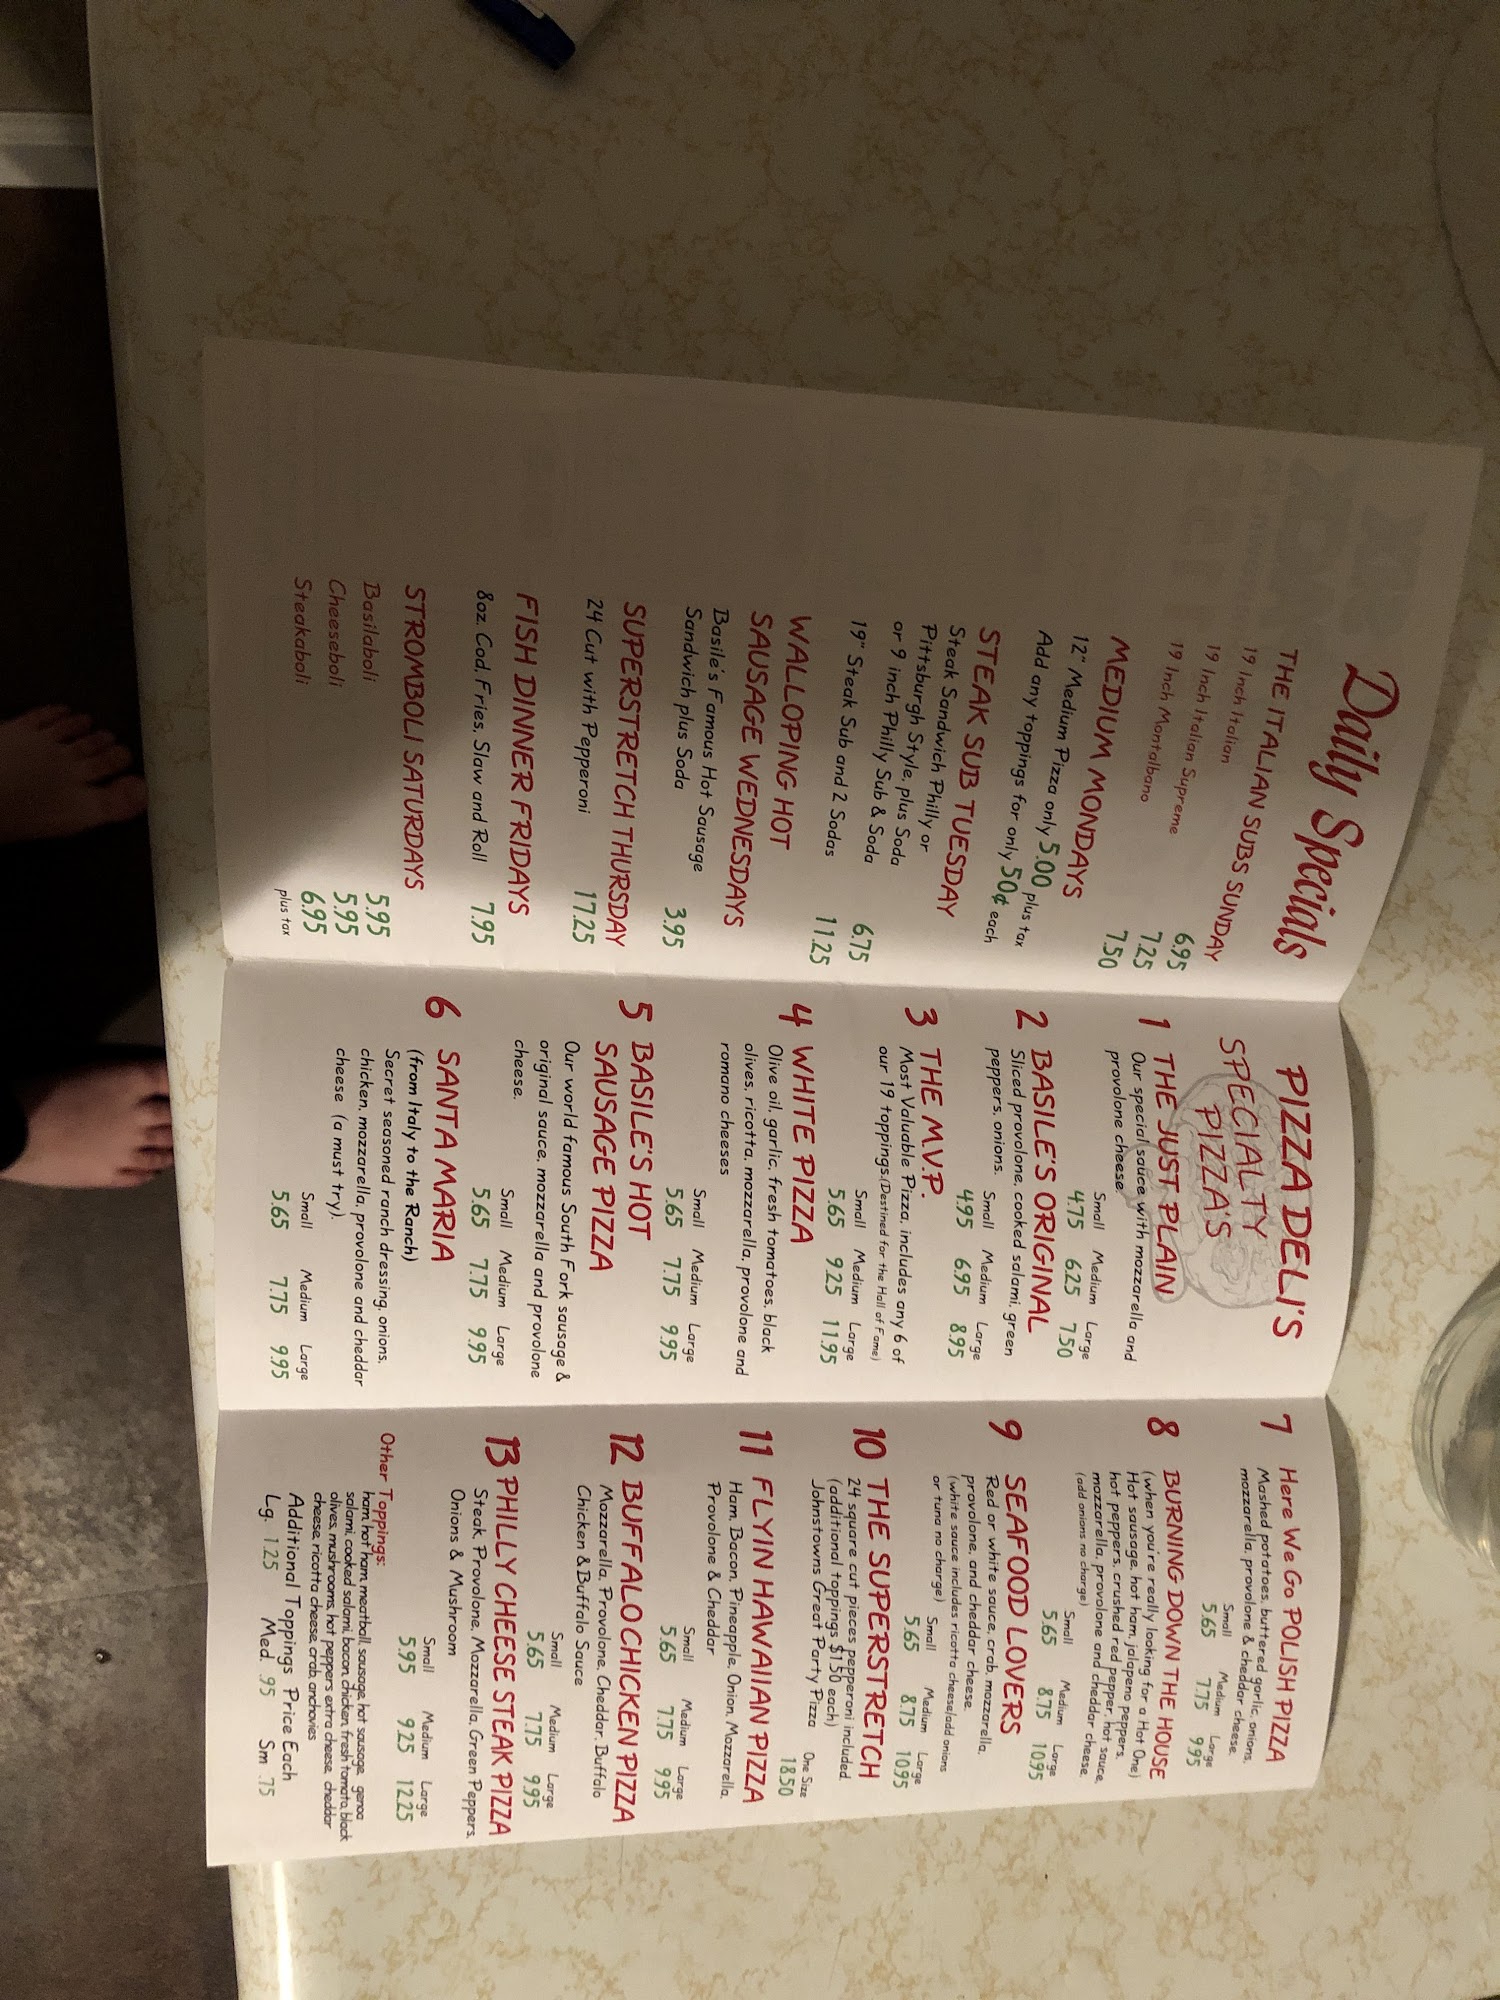 Daily Specials
THE ITALIAN SUBS SUNDAY
19 Inch Italian 6.95
19 Inch Italian Supreme 7.25
19 Inch Montalbano 7.50
MEDIUM MONDAYS
12" Medium Pizza only 5.00 plus tax
Add any toppings for only 50¢ each
STEAK SUB TUESDAY
Steak Sandwich Philly or
Pittsburgh Style, plus Soda
or 9 inch Philly Sub & Soda 6.75
19" Steak Sub and 2 Sodas 11.25
WALLOPING HOT
SAUSAGE WEDNESDAYS
Basile's Famous Hot Sausage
Sandwich plus Soda 3.95
SUPERSTRETCH THURSDAY
24 Cut with Pepperoni 17.25
FISH DINNER FRIDAYS
8oz. Cod, Fries, Slaw and Roll 7.95
STROMBOLI SATURDAYS
Basilaboli 5.95
Cheeseboli 5.95
Steakaboli 6.95
plus tax
PIZZA DELI'S
SPECIALTY
PIZZA'S
1 THE JUST PLAIN
Our special sauce with mozzarella and
provolone cheese.
Small Medium Large
4.75 6.25 7.50
2 BASILE'S ORIGINAL
Sliced provolone, cooked salami, green
peppers, onions.
Small Medium Large
4.95 6.95 8.95
3 THE M.V.P.
Most Valuable Pizza, includes any 6 of
our 19 toppings.(Destined for the Hall of Fame)
Small Medium Large
5.65 9.25 11.95
4 WHITE PIZZA
Olive oil, garlic, fresh tomatoes, black
olives, ricotta, mozzarella, provolone and
romano cheeses
Small Medium Large
5.65 7.75 9.95
5 BASILE'S HOT
SAUSAGE PIZZA
Our world famous South Fork sausage &
original sauce, mozzarella and provolone
cheese.
Small Medium Large
5.65 7.75 9.95
6 SANTA MARIA
(from Italy to the Ranch)
Secret seasoned ranch dressing, onions,
chicken, mozzarella, provolone and cheddar
cheese (a must try).
Small Medium Large
5.65 7.75 9.95
7 Here We Go POLISH PIZZA
Mashed potatoes, buttered garlic, onions,
mozzarella, provolone & cheddar cheese.
Small Medium Large
5.65 7.75 9.95
8 BURNING DOWN THE HOUSE
(when you're really looking for a Hot One)
Hot sausage, hot ham, jalapeno peppers,
hot peppers, crushed red pepper, hot sauce,
mozzarella, provolone and cheddar cheese.
(add onions no charge)
Small Medium Large
5.65 8.75 10.95
9 SEAFOOD LOVERS
Red or white sauce, crab, mozzarella,
provolone, and cheddar cheese.
(white sauce includes ricotta cheese/add onions
or tuna no charge)
Small Medium Large
5.65 8.75 10.95
10 THE SUPERSTRETCH
24 square cut pieces pepperoni included.
(additional toppings $1.50 each)
Johnstowns Great Party Pizza
One Size
18.50
11 FLYIN HAWAIIAN PIZZA
Ham, Bacon, Pineapple, Onion, Mozzarella,
Provolone & Cheddar
Small Medium Large
5.65 7.75 9.95
12 BUFFALO CHICKEN PIZZA
Mozzarella, Provolone, Cheddar, Buffalo
Chicken & Buffalo Sauce
Small Medium Large
5.65 7.75 9.95
13 PHILLY CHEESE STEAK PIZZA
Steak, Provolone, Mozzarella, Green Peppers,
Onions & Mushroom
Small Medium Large
5.95 9.25 12.25
Other Toppings:
ham, hot ham, meatball, sausage, hot sausage, genoa
salami, cooked salami, bacon, chicken, fresh tomato, black
olives, mushrooms, hot peppers extra cheese, cheddar
cheese, ricotta cheese, crab, anchovies
Additional Toppings Price Each
Lg. 1.25 Med. .95 Sm .75